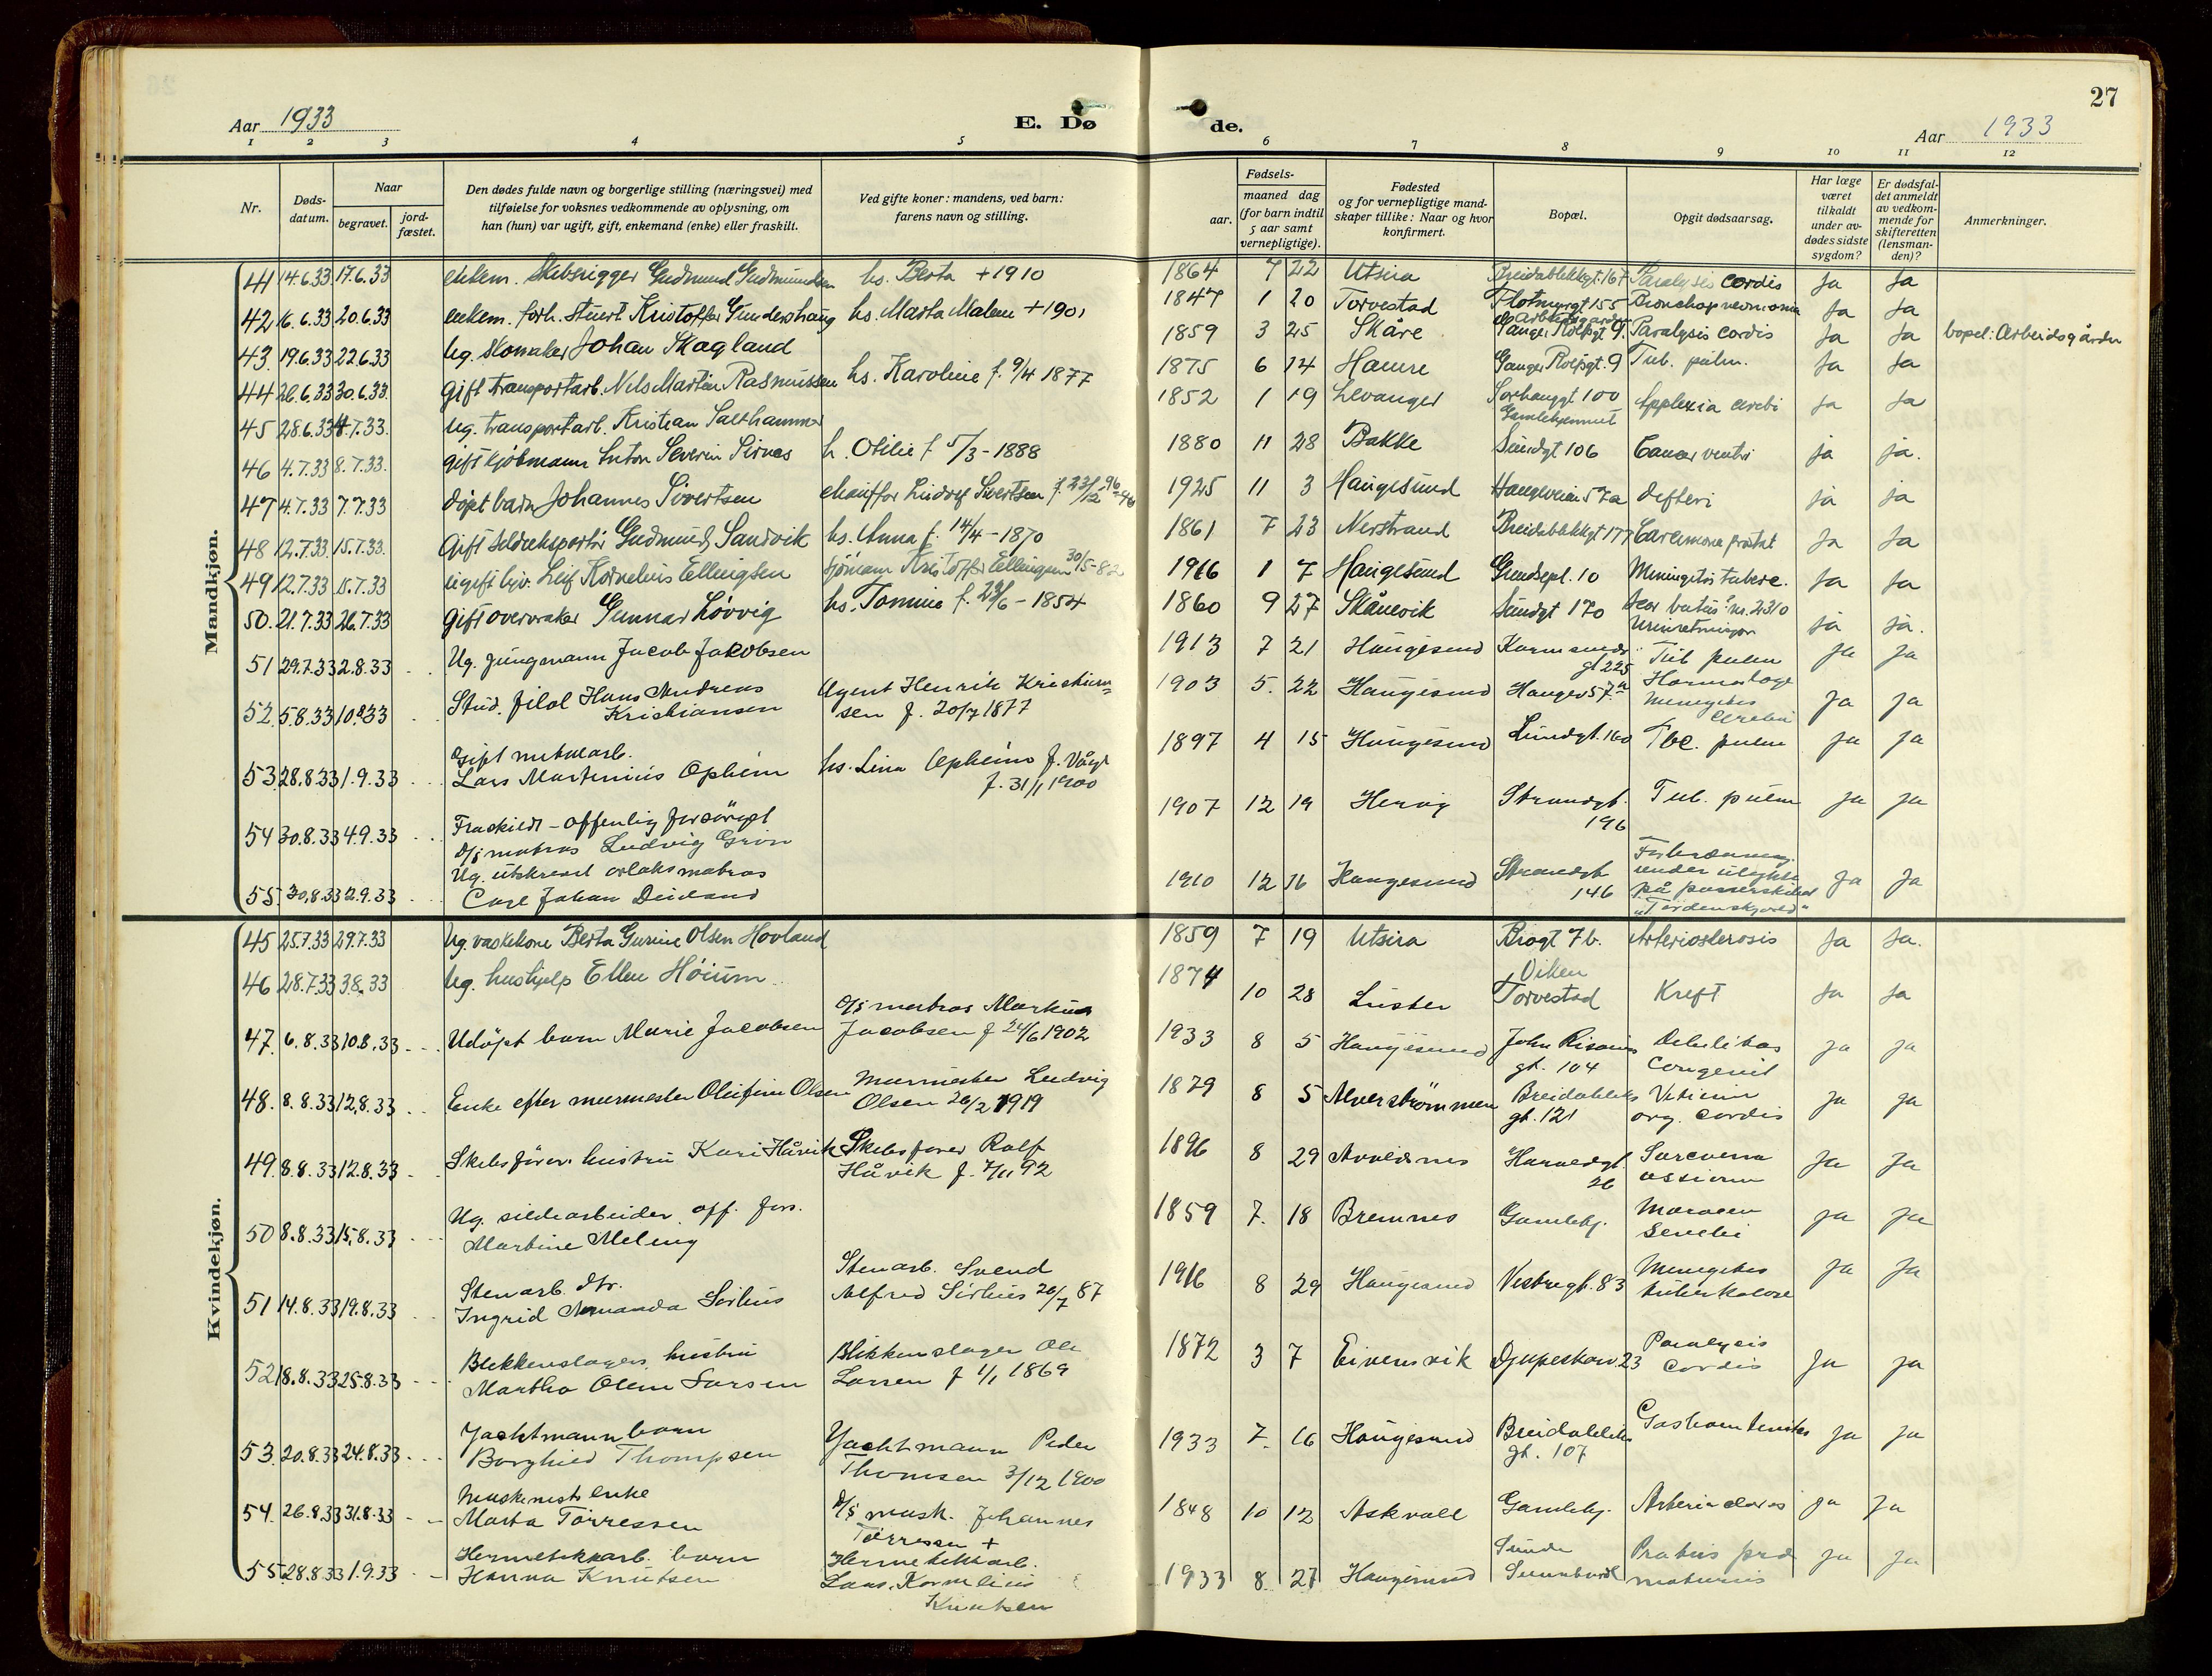 27
Aar 1933
E. Dø
de.
Aar 1933
1 2 3 4 5 6 7 8 9 10 11 12
Nr.
Døds-
datum.
Naar
begravet.
jord-
fæstet.
Den dødes fulde navn og borgerlige stilling (næringsvei) med
tilføielse for voksnes vedkommende av oplysning, om
han (hun) var ugift, gift, enkemand (enke) eller fraskilt.
Ved gifte koner: mandens, ved barn:
farens navn og stilling.
Fødsels-
aar.
maaned dag
(for barn indtil
5 aar samt
vernepligtige).
Fødested
og for vernepligtige mand-
skaper tillike: Naar og hvor
konfirmert.
Bopæl.
Opgit dødsaarsag.
Har læge
været
tilkaldt
under av-
dødes sidste
sygdom?
Er dødsfal-
det anmeldt
av vedkom-
mende for
skifteretten
(lensman-
den)?
Anmerkninger.
Mandkjøn.
41 14.6.33 17.6.33 enkem. Skibsrigger Gudmund Gudmundsen hs. Berta +1910 1864 7 22 Utsira Breidablikkgt. 167 Paralysis cordis Ja Ja
42 16.6.33 20.6.33 enkem. forh. Stuert Kristoffer Gundershaug hs. Marta Malene +1901 1847 1 20 Torvestad Flotmyrgt 155 Bronchopneumonia Ja Ja
43. 19.6.33 22.6.33 Ug. Skomaker Johan Skagland 1859 3 25 Skåre Ganger Rolfsgt 9. Paralysis cordis Ja Ja bopel: Arbeidsgården
44 26.6.33 30.6.33. Gift transportarb. Nels Martin Rasmussen hs. Karoline f. 9/4 1877 1875 6 14 Hamre Ganger Rolfsgt. 9 Tub. pulm. Ja Ja
45 28.6.33 4.7.33. Ug. transportarb. Kristian Salthammer 1852 1 19 Levanger Sørhauggt 100
Gamlehjemmet Applexia cerebi Ja Ja
46 4.7.33 8.7.33. gift kjøbmann Anton Severin Sirnes h. Otilie f 5/3-1888 1880 11 28 Bakke Sundgt 106 Cancer ventri ja ja.
47 4.7.33 7.7.33 døpt barn Johannes Sivertsen chauffør Ludvig Sivertsen f. 23/12 96 1925 11 3 Haugesund Haugeveien 57a defteri ja ja
48 12.7.33. 15.7.33. Gift sildeeksportør Gudmund Sandvik hs. Anna f. 14/4-1870 1861 7 23 Nerstrand Breidablikkgt 177 Carcinoma prostat Ja Ja
49 12.7.33 15.7.33 ugift Leif Kornelius Ellingsen sjømann Kristoffer Ellingsen 30/5-82 1916 1 7 Haugesund Grundepl. 10 Meningitis tuberc. Ja Ja
50. 21.7.33 26.7.33 Gift overvraker Gunnar Løvvig hs. Tomine f. 23/6-1854 1860 9 27 Skånevik Sundgt 170 ja ja.
51 29.7.33 2.8.33 Ug. jungmann Jacob Jakobsen 1913 7 21 Haugesund Karmsunds
gt 225 Tub pulm Ja Ja
52. 5.8.33 10.8.33 Stud. filol Hans Andreas
Kristiansen Agent Henrik Kristian-
sen f. 20/7 1877 1903 5. 22 Haugesund Haugev 57a Ja Ja
53 28.8.33 1.9.33 Gift
Lars Martinius Opheim hs. Lina Opheim f. Våge
f. 31/1 1900 1897 4 15 Haugesund Lundgt. 160 Tbc. pulm Ja Ja
54 30.8.33 4.9.33 Fraskildt - offenlig forsörget
D/s matros Ludvig Grön 1907 12 19 Hervig Strandgt.
196 Tub. pulm Ja Ja
55 30.8.33 2.9.33 Ug. utskrevet orlaksmatros
Carl Johan Deidand 1910 12 16 Haugesund Strandgt
146
under ulykke
på panserskibet
"Tordenskjold" Ja Ja
Kvindekjøn.
45 25.7.33 29.7.33 Ug. vaskekone Berta Gurine Olsen Hovland 1859 7 19 Utsira Brogt 7b. Arteriosclerosis Ja Ja.
46 28.7.33 3.8.33 Ug. hushjelp Ellen Høium 1874 10 28 Luster Viken
Torvestad Kreft Ja Ja
47. 6.8.33 10.8.33 Udöpt barn Marie Jacobsen D/s matros Markus
Jacobsen f 24/6 1902 1933 8 5 Haugesund John Risøens
gt. 104 Debilitas
Congenit Ja Ja
48. 8.8.33 12.8.33 Enke efter murmester Olufine Olsen Murmester Ludvig
Olsen 20/2 1919 1879 8 5 Alverströmmen Breidabliks
gt. 121 Vitium
org. cordis Ja Ja
49. 8.8.33 12.8.33 Skibsförer hustru Kari Håvik Skibsförer Rolf
Håvik f. 7/11 92 1896 8 29 Avaldsnes Haraldgt.
26 Sarcoma
ossium Ja Ja
50 8.8.33 15.8.33 Ug. sildearbeider off. fors.
Martine Meling 1859 7. 18 Bremnes Gamlehj. Marasm
Senilis Ja Ja
51 14.8.33 19.8.33 Stenarb. dtr.
Ingrid Amanda Sirhus Stenarb. Svend
Alfred Sirhus 20/7 87 1916 8 29 Haugesund Vestregt. 83 Meningitis
tuberkulose Ja Ja
52 18.8.33 25.8.33 Blikkenslagers hustru
Martha Olene Larsen Blikkenslager Ole
Larsen f 1/1 1869 1872 3 7 Eivensvik Djupeskar. 23 Paralysis
Cordis Ja Ja
53. 20.8.33 24.8.33 Yachtmann barn
Borghild Thompsen Yachtmann Peder
Thomsen 3/12 1900 1933 7. 16 Haugesund Breidabliks
gt. 107 Ja Ja
54. 26.8.33 31.8.33 Maskinist enke
Marta Törressen D/s mask. Johannes
Törressen + 1848 10 12 Askvoll Gamlehj. Ja Ja
55. 28.8.33 1.9.33 Hermetikkarb. barn
Hanna Knutsen Hermetikkarb.
Lars Kornelius
Knutsen 1933 8 27 Haugesund Ja Ja